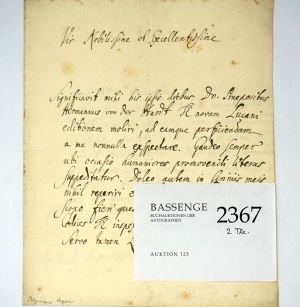 Vir Nobilissime et Excellentissime
Significavit mihi his ipsis diebus Dn. Praepositus
Hermannus von der Hardt Te novam Luciani
editionem moliri, ad eamque perficiendam
a me nonnulla expectare. Gaudeo semper
ubi occasio humaniores promovendi literas
suppeditatur. Doleo autem in schiniis meis
nihil reperiri
scopo fieri
Codices
Servo tamen
BASSENGE
BUCHAUKTIONEN GBR
AUTOGRAPHEN
2367
2 Tle.
AUKTION 123